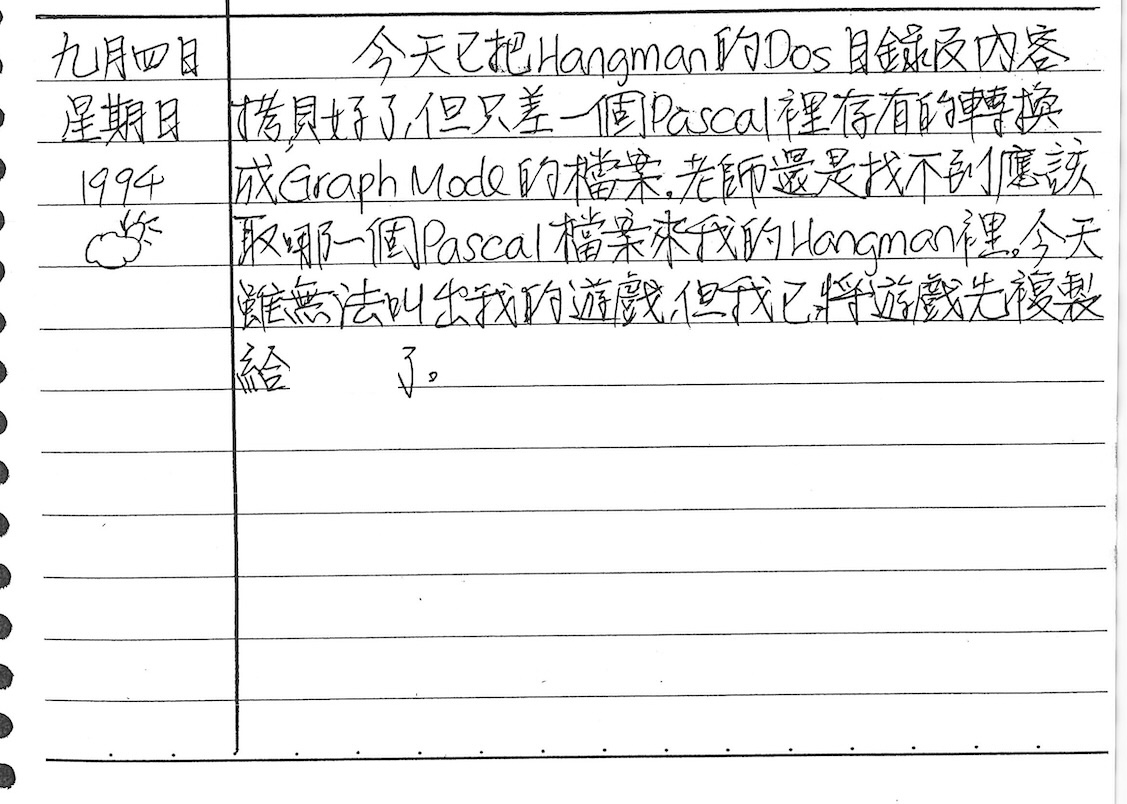 九月四日
星期日
1994
今天已把Hangman的Dos目錄及內容
拷貝好了,但只差一個Pascal裡存有的轉換
成Graph Mode的檔案,老師還是找不到應該
取哪一個Pascal檔案來我的Hangman裡。今天
雖無法叫出我的遊戲,但我已將遊戲先複製
給 了。